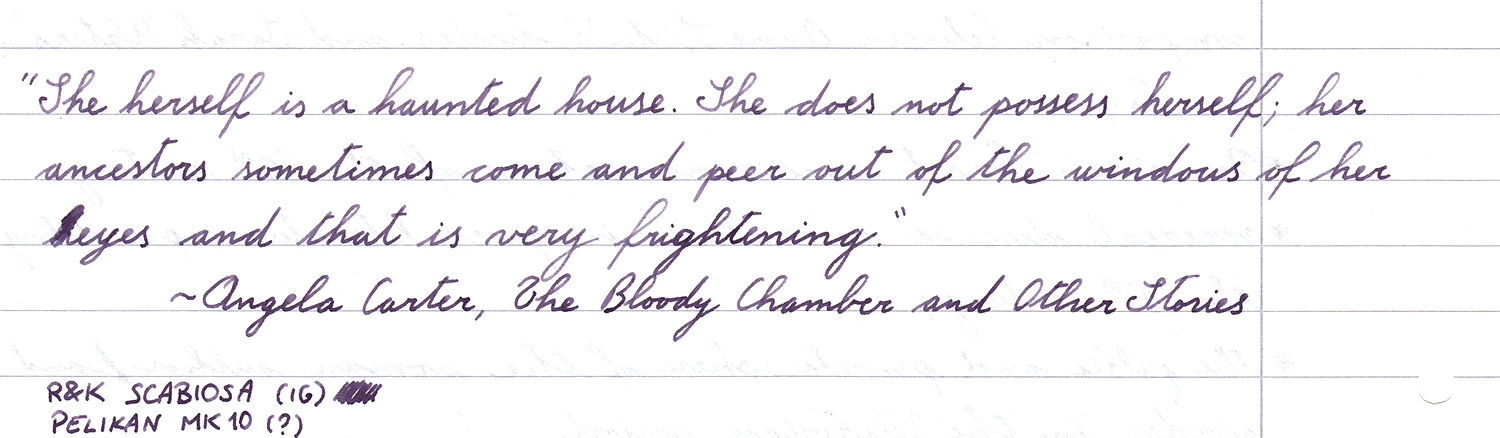 "She herself is a haunted house. She does not possess herself; her
ancestors sometimes come and peer out of the windows of her
eyes and that is very frightening."
~Angela Carter, The Bloody Chamber and Other Stories
R&K SCABIOSA (IG)
PELIKAN MK10 (?)